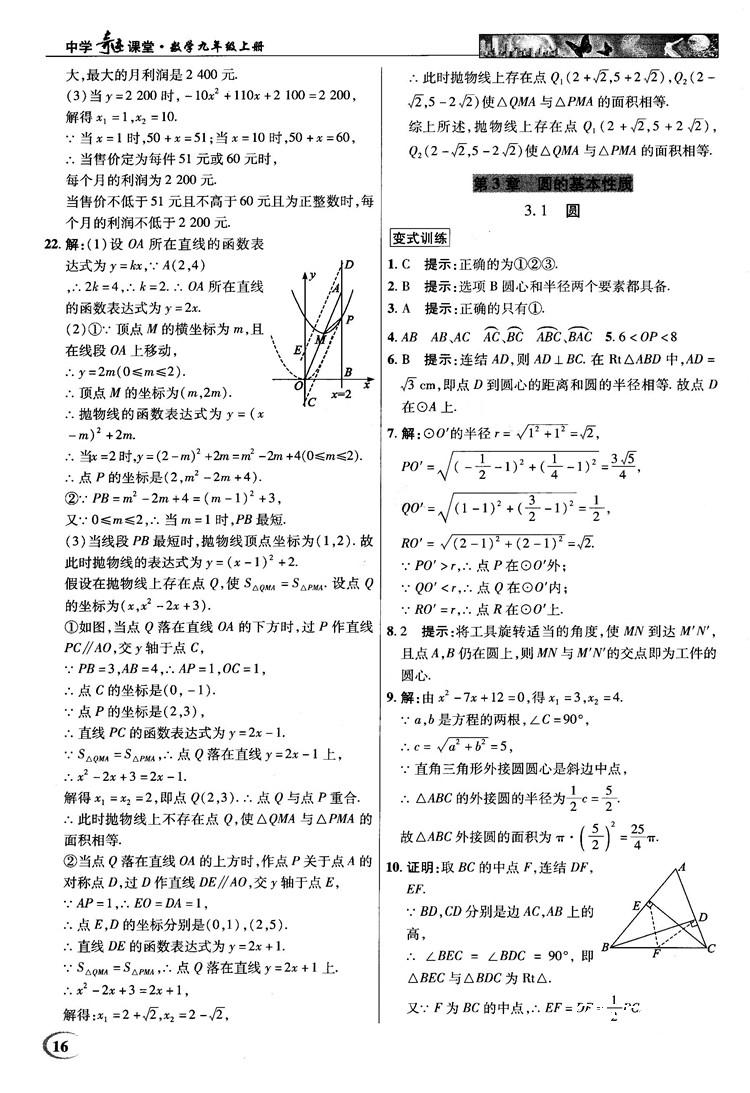 中学奇迹课堂·数学九年级上册
大,最大的月利润是2 400元.
(3)当y=2 200时,-10x²+110x+2 100=2 200,
解得x₁=1,x₂=10.
∵当x=1时,50+x=51;当x=10时,50+x=60,
∴当售价定为每件51元或60元时,
每个月的利润为2 200元.
当售价不低于51元且不高于60元且为正整数时,每
个月的利润不低于2 200元.
22.解:(1)设OA所在直线的函数表
达式为y=kx,∵A(2,4)
,∴2k=4,∴k=2.∴OA所在直线
的函数表达式为y=2x.
(2)①∵顶点M的横坐标为m,且
在线段OA上移动,
∴y=2m(0≤m≤2).
∴顶点M的坐标为(m,2m).
∴抛物线的函数表达式为y=(x
-m)²+2m.
∴当x=2时,y=(2-m)²+2m=m²-2m+4(0≤m≤2).
∴点P的坐标是(2,m²-2m+4).
②∵PB=m²-2m+4=(m-1)²+3,
又∵0≤m≤2,∴当m=1时,PB最短.
(3)当线段PB最短时,抛物线顶点坐标为(1,2).故
此时抛物线的表达式为y=(x-1)²+2.
假设在抛物线上存在点Q,使S△QMA=S△PMA.设点Q
的坐标为(x,x²-2x+3).
①如图,当点Q落在直线OA的下方时,过P作直线
PC∥AO,交y轴于点C,
∵PB=3,AB=4,∴AP=1,OC=1,
∴点C的坐标是(0,-1).
∵点P的坐标是(2,3),
∴直线PC的函数表达式为y=2x-1.
∵S△QMA=S△PMA,∴点Q落在直线y=2x-1上,
∴x²-2x+3=2x-1.
解得x₁=x₂=2,即点Q(2,3).∴点Q与点P重合.
∴此时抛物线上不存在点Q,使△QMA与△PMA的
面积相等.
②当点Q落在直线OA的上方时,作点P关于点A的
对称点D,过D作直线DE∥AO,交y轴于点E,
∵AP=1,∴EO=DA=1,
∴点E,D的坐标分别是(0,1),(2,5).
∴直线DE的函数表达式为y=2x+1.
∵S△QMA=S△PMA,∴点Q落在直线y=2x+1上.
∴x²-2x+3=2x+1,
解得:x₁=2+√2,x₂=2-√2,
y
D
A
P
M
E
O
B
x
C
x=2
16
∴此时抛物线上存在点Q₁(2+√2,5+2√2),Q₂(2-
√2,5-2√2)使△QMA与△PMA的面积相等.
综上所述,抛物线上存在点Q₁(2+√2,5+2√2),
Q₂(2-√2,5-2√2)使△QMA与△PMA的面积相等.
第3章 圆的基本性质
3.1 圆
变式训练
1.C 提示:正确的为①②③.
2.B 提示:选项B圆心和半径两个要素都具备.
3.A 提示:正确的只有①.
4.AB AB、AC A͡C、B͡C A͡BC、B͡AC 5.6<OP<8
6.B 提示:连结AD,则AD⊥BC.在Rt△ABD中,AD=
√3 cm,即点D到圆心的距离和圆的半径相等.故点D
在⊙A上.
7.解:⊙O′的半径r=√(1²+1²)=√2,
PO′=√((-1/2-1)²+(1/4-1)²)=3√5/4,
QO′=√((1-1)²+(3/2-1)²)=1/2,
RO′=√((2-1)²+(2-1)²)=√2.
∵PO′>r,∴点P在⊙O′外;
∵QO′<r,∴点Q在⊙O′内;
∵RO′=r,∴点R在⊙O′上.
8.2 提示:将工具旋转适当的角度,使MN到达M′N′,
且点A,B仍在圆上,则MN与M′N′的交点即为工件的
圆心.
9.解:由x²-7x+12=0,得x₁=3,x₂=4.
∵a,b是方程的两根,∠C=90°,
∴c=√(a²+b²)=5,
∵直角三角形外接圆圆心是斜边中点,
∴△ABC的外接圆的半径为1/2c=5/2.
故△ABC外接圆的面积为π·(5/2)²=25/4π.
10.证明:取BC的中点F,连结DF,
EF.
∵BD,CD分别是边AC,AB上的
高,
∴∠BEC=∠BDC=90°,即
△BEC与△BDC为Rt△.
又∵F为BC的中点,∴EF=DF=1/2BC.
A
E
D
B
F
C